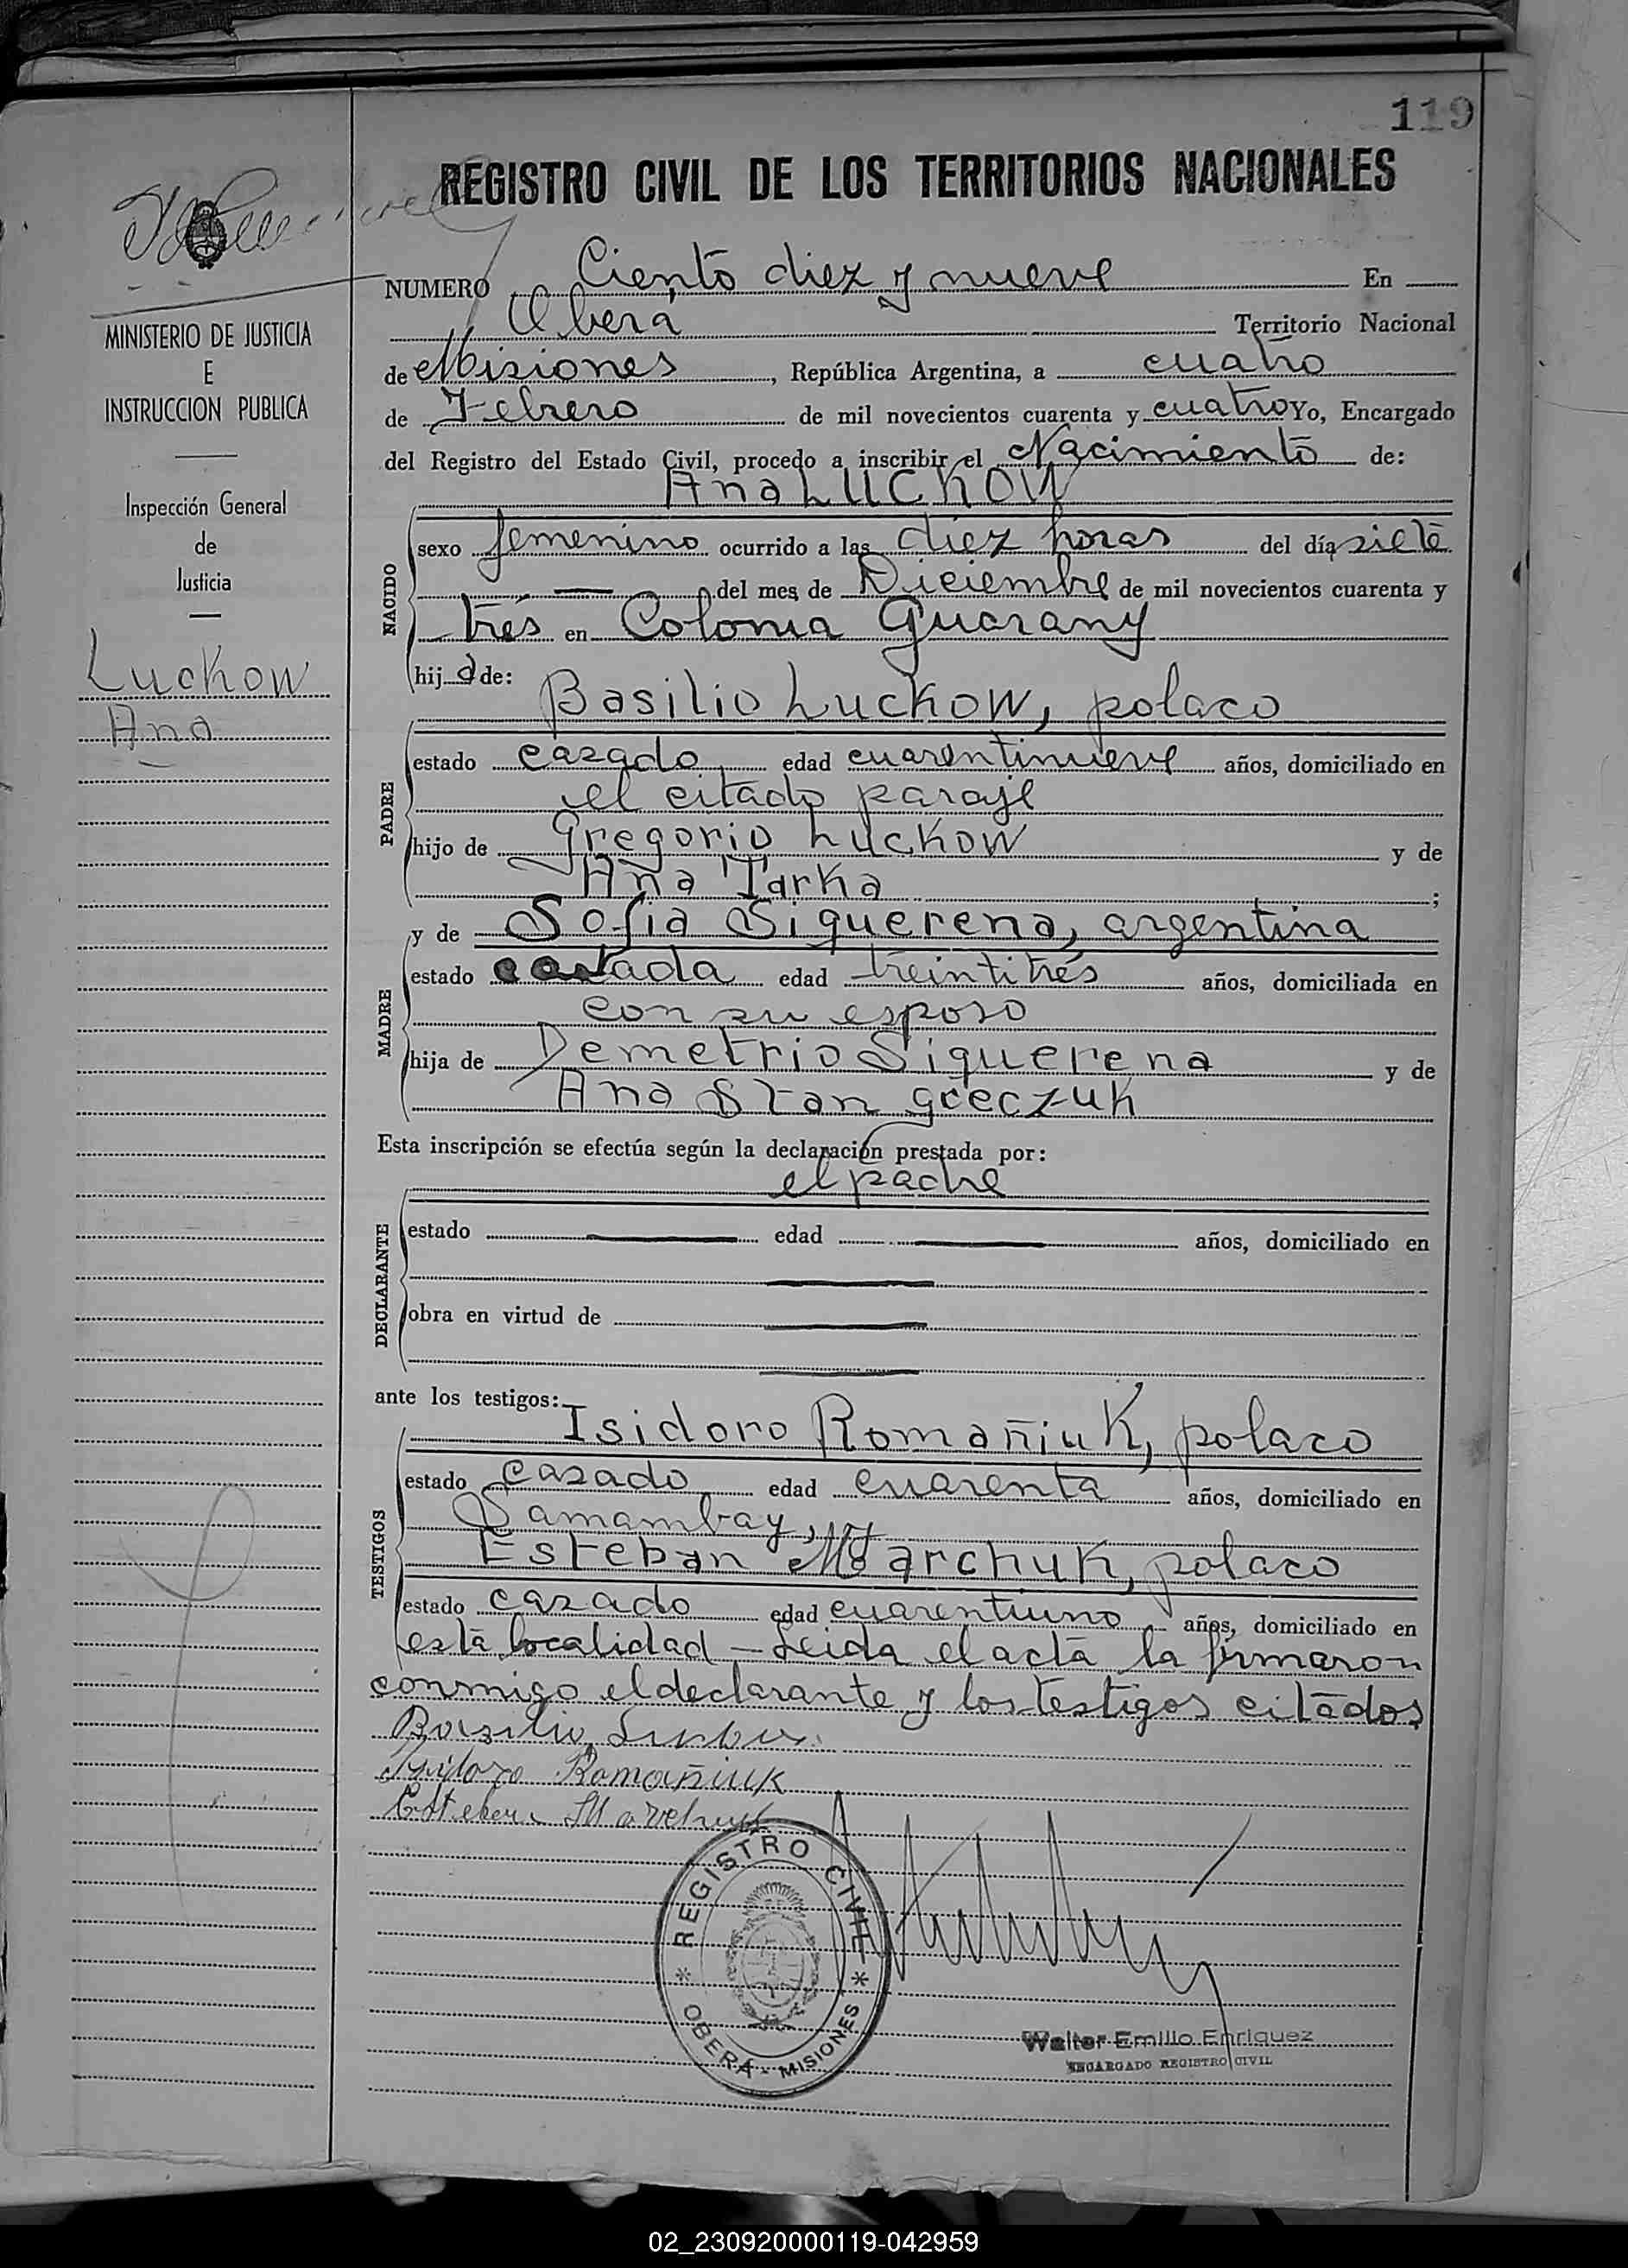 119
REGISTRO CIVIL DE LOS TERRITORIOS NACIONALES
NUMERO Ciento diez y nueve En
Oberá Territorio Nacional
de Misiones, República Argentina, a cuatro
de Febrero de mil novecientos cuarenta y cuatro Yo, Encargado
del Registro del Estado Civil, procedo a inscribir el Nacimiento de:
Ana Luckow
NACIDO
sexo femenino ocurrido a las diez horas del día siete
del mes de Diciembre de mil novecientos cuarenta y
trés en Colonia Guarany
hija de:
Basilio Luckow, polaco
PADRE
estado casado edad cuarentinueve años, domiciliado en
el citado paraje
hijo de Gregorio Luckow y de
Ana Tarka ;
y de Sofia Siquerena, argentina
MADRE
estado casada edad treintitrés años, domiciliada en
con su esposo
hija de Demetrio Siquerena y de
Ana Stan greczuk
Esta inscripción se efectúa según la declaración prestada por:
el padre
DECLARANTE
estado edad años, domiciliado en
obra en virtud de
ante los testigos:
Isidoro Romañiuk, polaco
TESTIGOS
estado casado edad cuarenta años, domiciliado en
Samambay, y
Esteban Marchuk, polaco
estado casado edad cuarentiuno años, domiciliado en
esta localidad - Leida el acta la firmaron
conmigo el declarante y los testigos citados
Basilio
Isidoro Romañiuk
Esteban Marchuk
REGISTRO CIVIL
OBERÁ - MISIONES
Walter Emilio Enriquez
ENCARGADO REGISTRO CIVIL
MINISTERIO DE JUSTICIA
E
INSTRUCCION PUBLICA
Inspección General
de
Justicia
Luckow
Ana
02_230920000119-042959